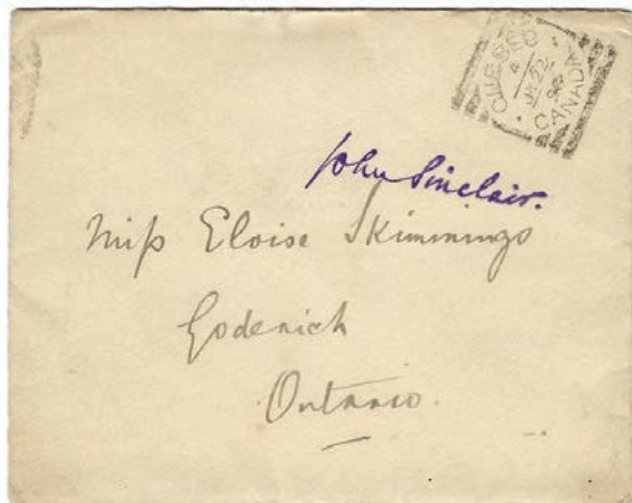 QUEBEC
4
22
98
CANADA
John Sinclair.
Miss Eloise Skimmings
Goderich
Ontario.